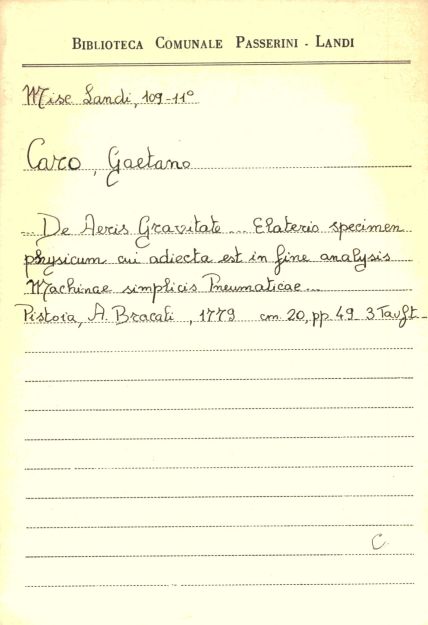 BIBLIOTECA COMUNALE PASSERINI - LANDI
Misc Landi, 109-11°
Caro, Gaetano
... De Aeris Gravitate ... Elaterio specimen
physicum cui adiecta est in fine analysis
Machinae simplicis Pneumaticae...
Pistoia, A. Bracali, 1779 cm 20, pp. 49 - 3 Tav. ft -
C